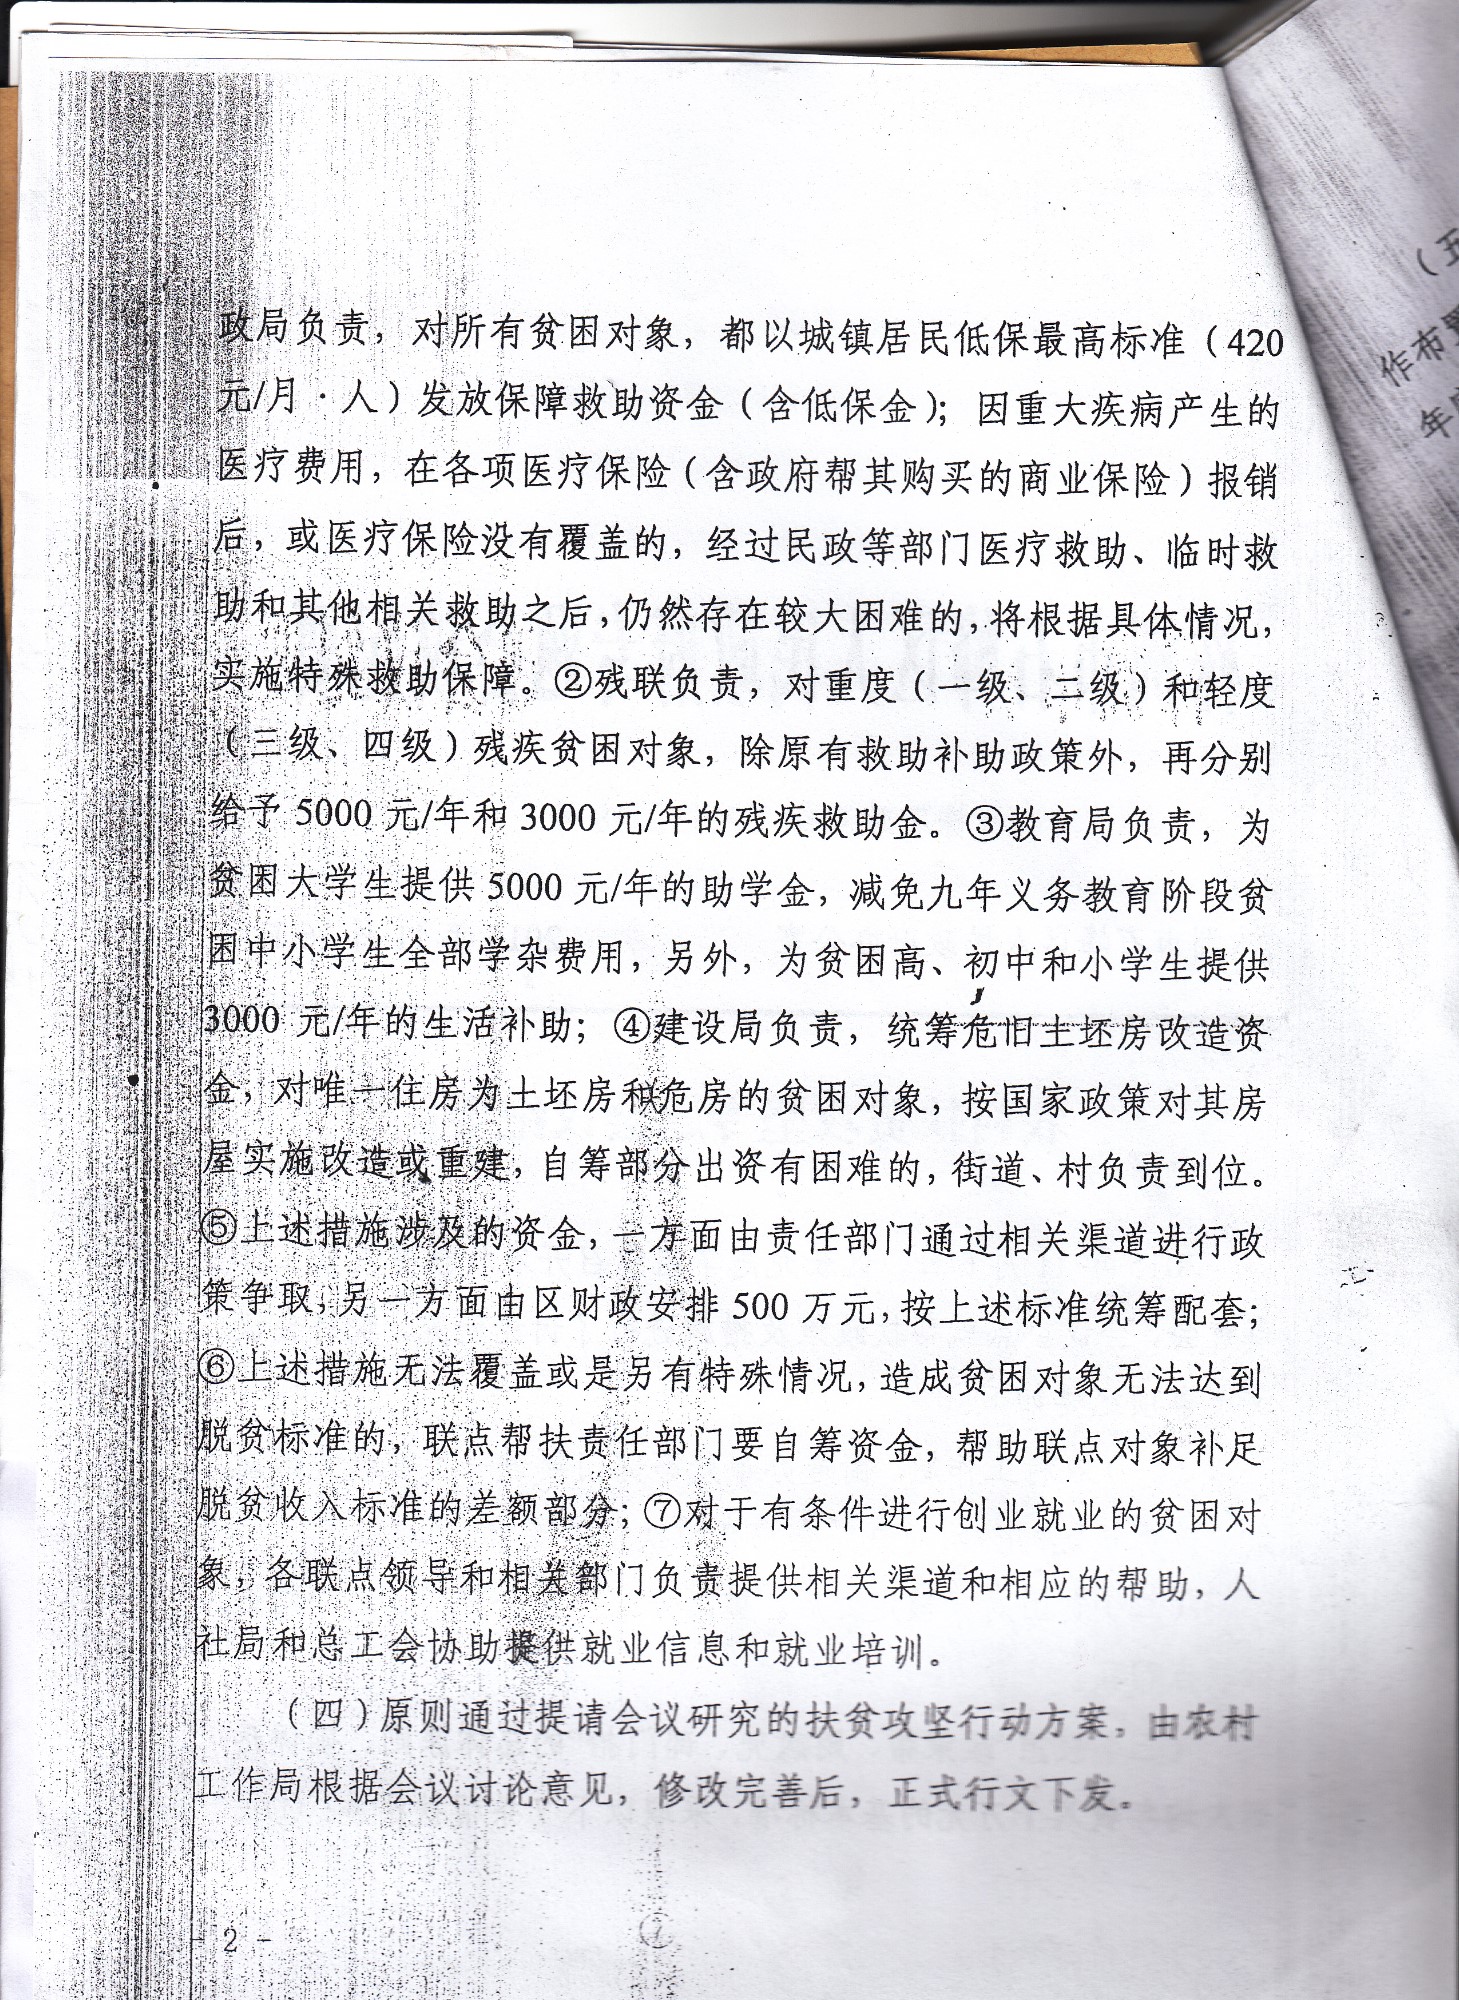 政局负责，对所有贫困对象，都以城镇居民低保最高标准（420
元/月·人）发放保障救助资金（含低保金）；因重大疾病产生的
医疗费用，在各项医疗保险（含政府帮其购买的商业保险）报销
后，或医疗保险没有覆盖的，经过民政等部门医疗救助、临时救
助和其他相关救助之后，仍然存在较大困难的，将根据具体情况，
实施特殊救助保障。②残联负责，对重度（一级、二级）和轻度
（三级、四级）残疾贫困对象，除原有救助补助政策外，再分别
给予 5000 元/年和 3000 元/年的残疾救助金。③教育局负责，为
贫困大学生提供 5000 元/年的助学金，减免九年义务教育阶段贫
困中小学生全部学杂费用，另外，为贫困高、初中和小学生提供
3000 元/年的生活补助；④建设局负责，统筹危旧土坯房改造资
金，对唯一住房为土坯房和危房的贫困对象，按国家政策对其房
屋实施改造或重建，自筹部分出资有困难的，街道、村负责到位。
⑤上述措施涉及的资金，一方面由责任部门通过相关渠道进行政
策争取，另一方面由区财政安排 500 万元，按上述标准统筹配套；
⑥上述措施无法覆盖或是另有特殊情况，造成贫困对象无法达到
脱贫标准的，联点帮扶责任部门要自筹资金，帮助联点对象补足
脱贫收入标准的差额部分；⑦对于有条件进行创业就业的贫困对
象，各联点领导和相关部门负责提供相关渠道和相应的帮助，人
社局和总工会协助提供就业信息和就业培训。
（四）原则通过提请会议研究的扶贫攻坚行动方案，由农村
工作局根据会议讨论意见，修改完善后，正式行文下发。
- 2 -
（五
作布
年